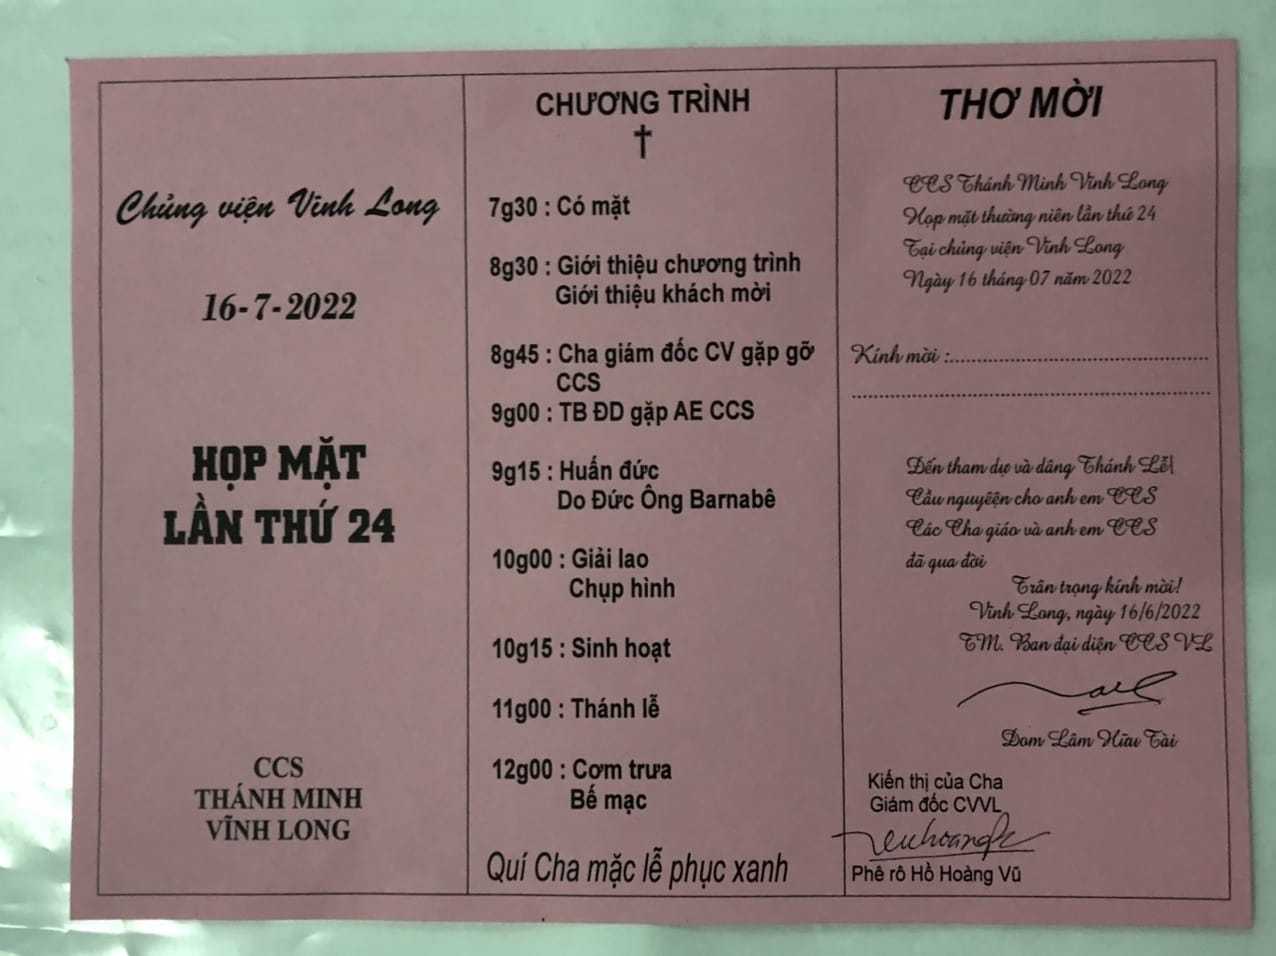 Chủng viện Vĩnh Long
16-7-2022
HỌP MẶT
LẦN THỨ 24
CCS
THÁNH MINH
VĨNH LONG
CHƯƠNG TRÌNH
7g30 : Có mặt
8g30 : Giới thiệu chương trình
Giới thiệu khách mời
8g45 : Cha giám đốc CV gặp gỡ
CCS
9g00 : TB ĐD gặp AE CCS
9g15 : Huấn đức
Do Đức Ông Barnabê
10g00 : Giải lao
Chụp hình
10g15 : Sinh hoạt
11g00 : Thánh lễ
12g00 : Cơm trưa
Bế mạc
Quí Cha mặc lễ phục xanh
THƠ MỜI
CCS Thánh Minh Vĩnh Long
Họp mặt thường niên lần thứ 24
Tại chủng viện Vĩnh Long
Ngày 16 tháng 07 năm 2022
Kính mời :..........................................
..........................................................
Đến tham dự và dâng Thánh Lễ
Cầu nguyêện cho anh em CCS
Các Cha giáo và anh em CCS
đã qua đời
Trân trọng kính mời!
Vĩnh Long, ngày 16/6/2022
TM. Ban đại diện CCS VL
Dom Lâm Hữu Tài
Kiến thị của Cha
Giám đốc CVVL
Phê rô Hồ Hoàng Vũ